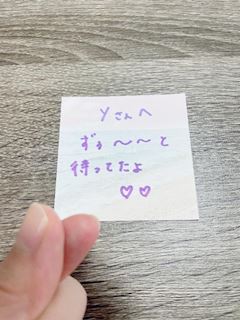 Yさんへ
ずぅ〜〜と
待ってたよ
♡♡